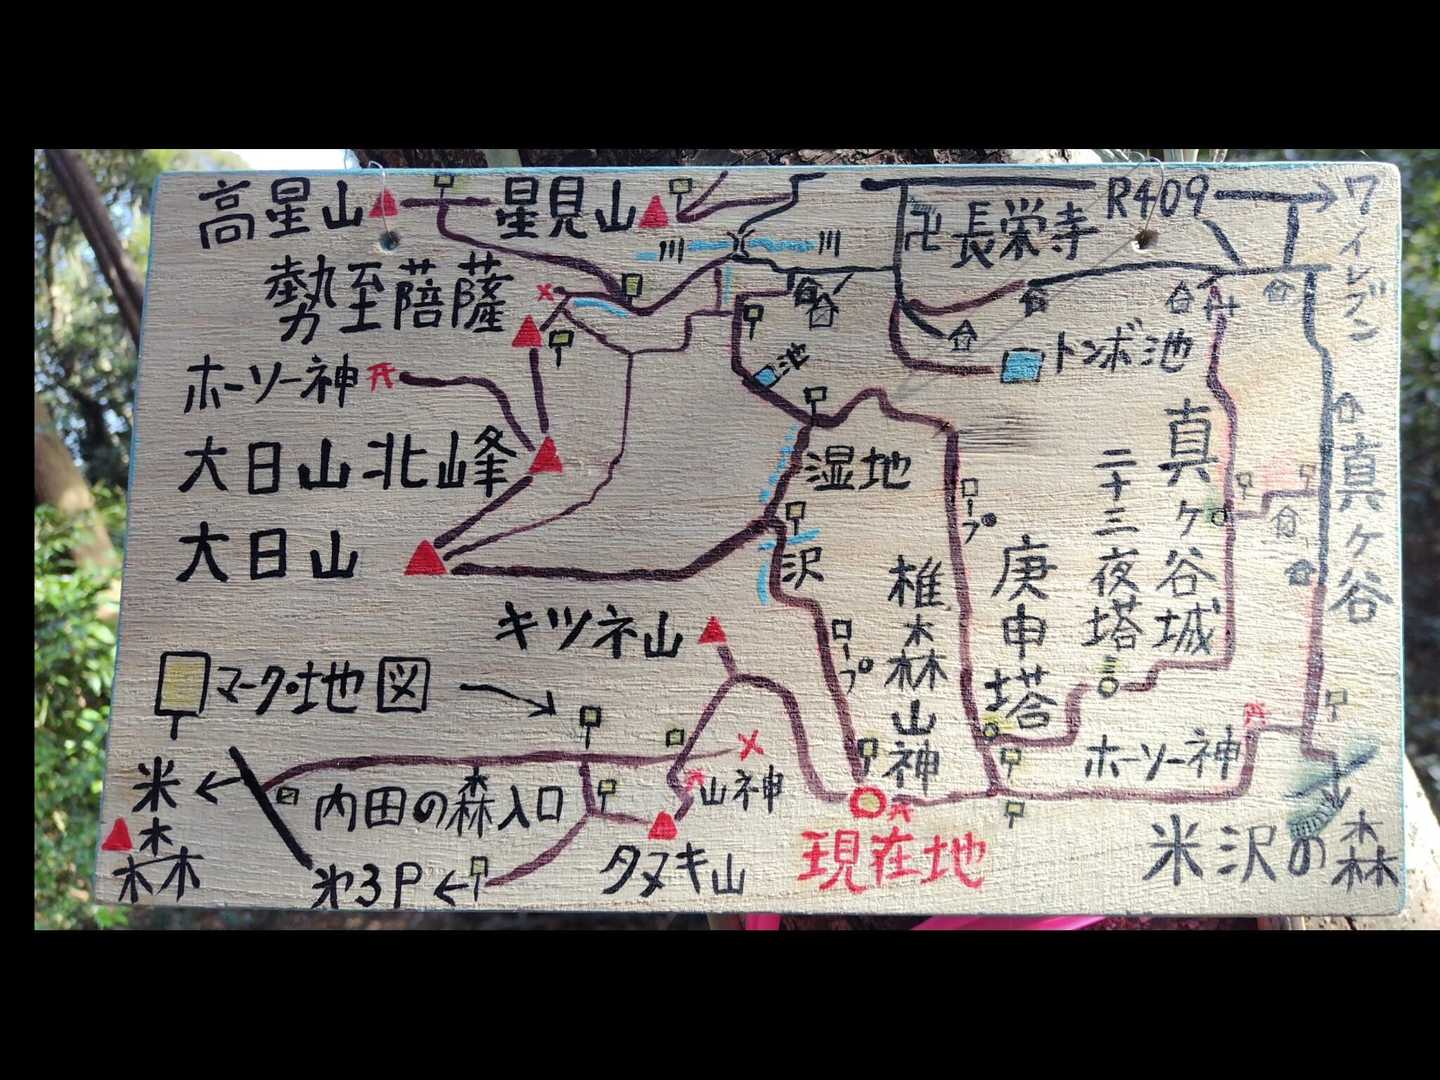 高星山
星見山
川
川
卍長栄寺
R409
ワイレブン
勢至菩薩
谷
トンボ池
池
ホーソー神
大日山北峰
湿地
真ヶ谷城
二十三夜塔
真ヶ谷
大日山
沢
ロープ
椎木森山神
ロープ
庚申塔
キツネ山
マーク・地図
ホーソー神
米
内田の森入口
山神
森
㐧3P
タヌキ山
現在地
米沢の森